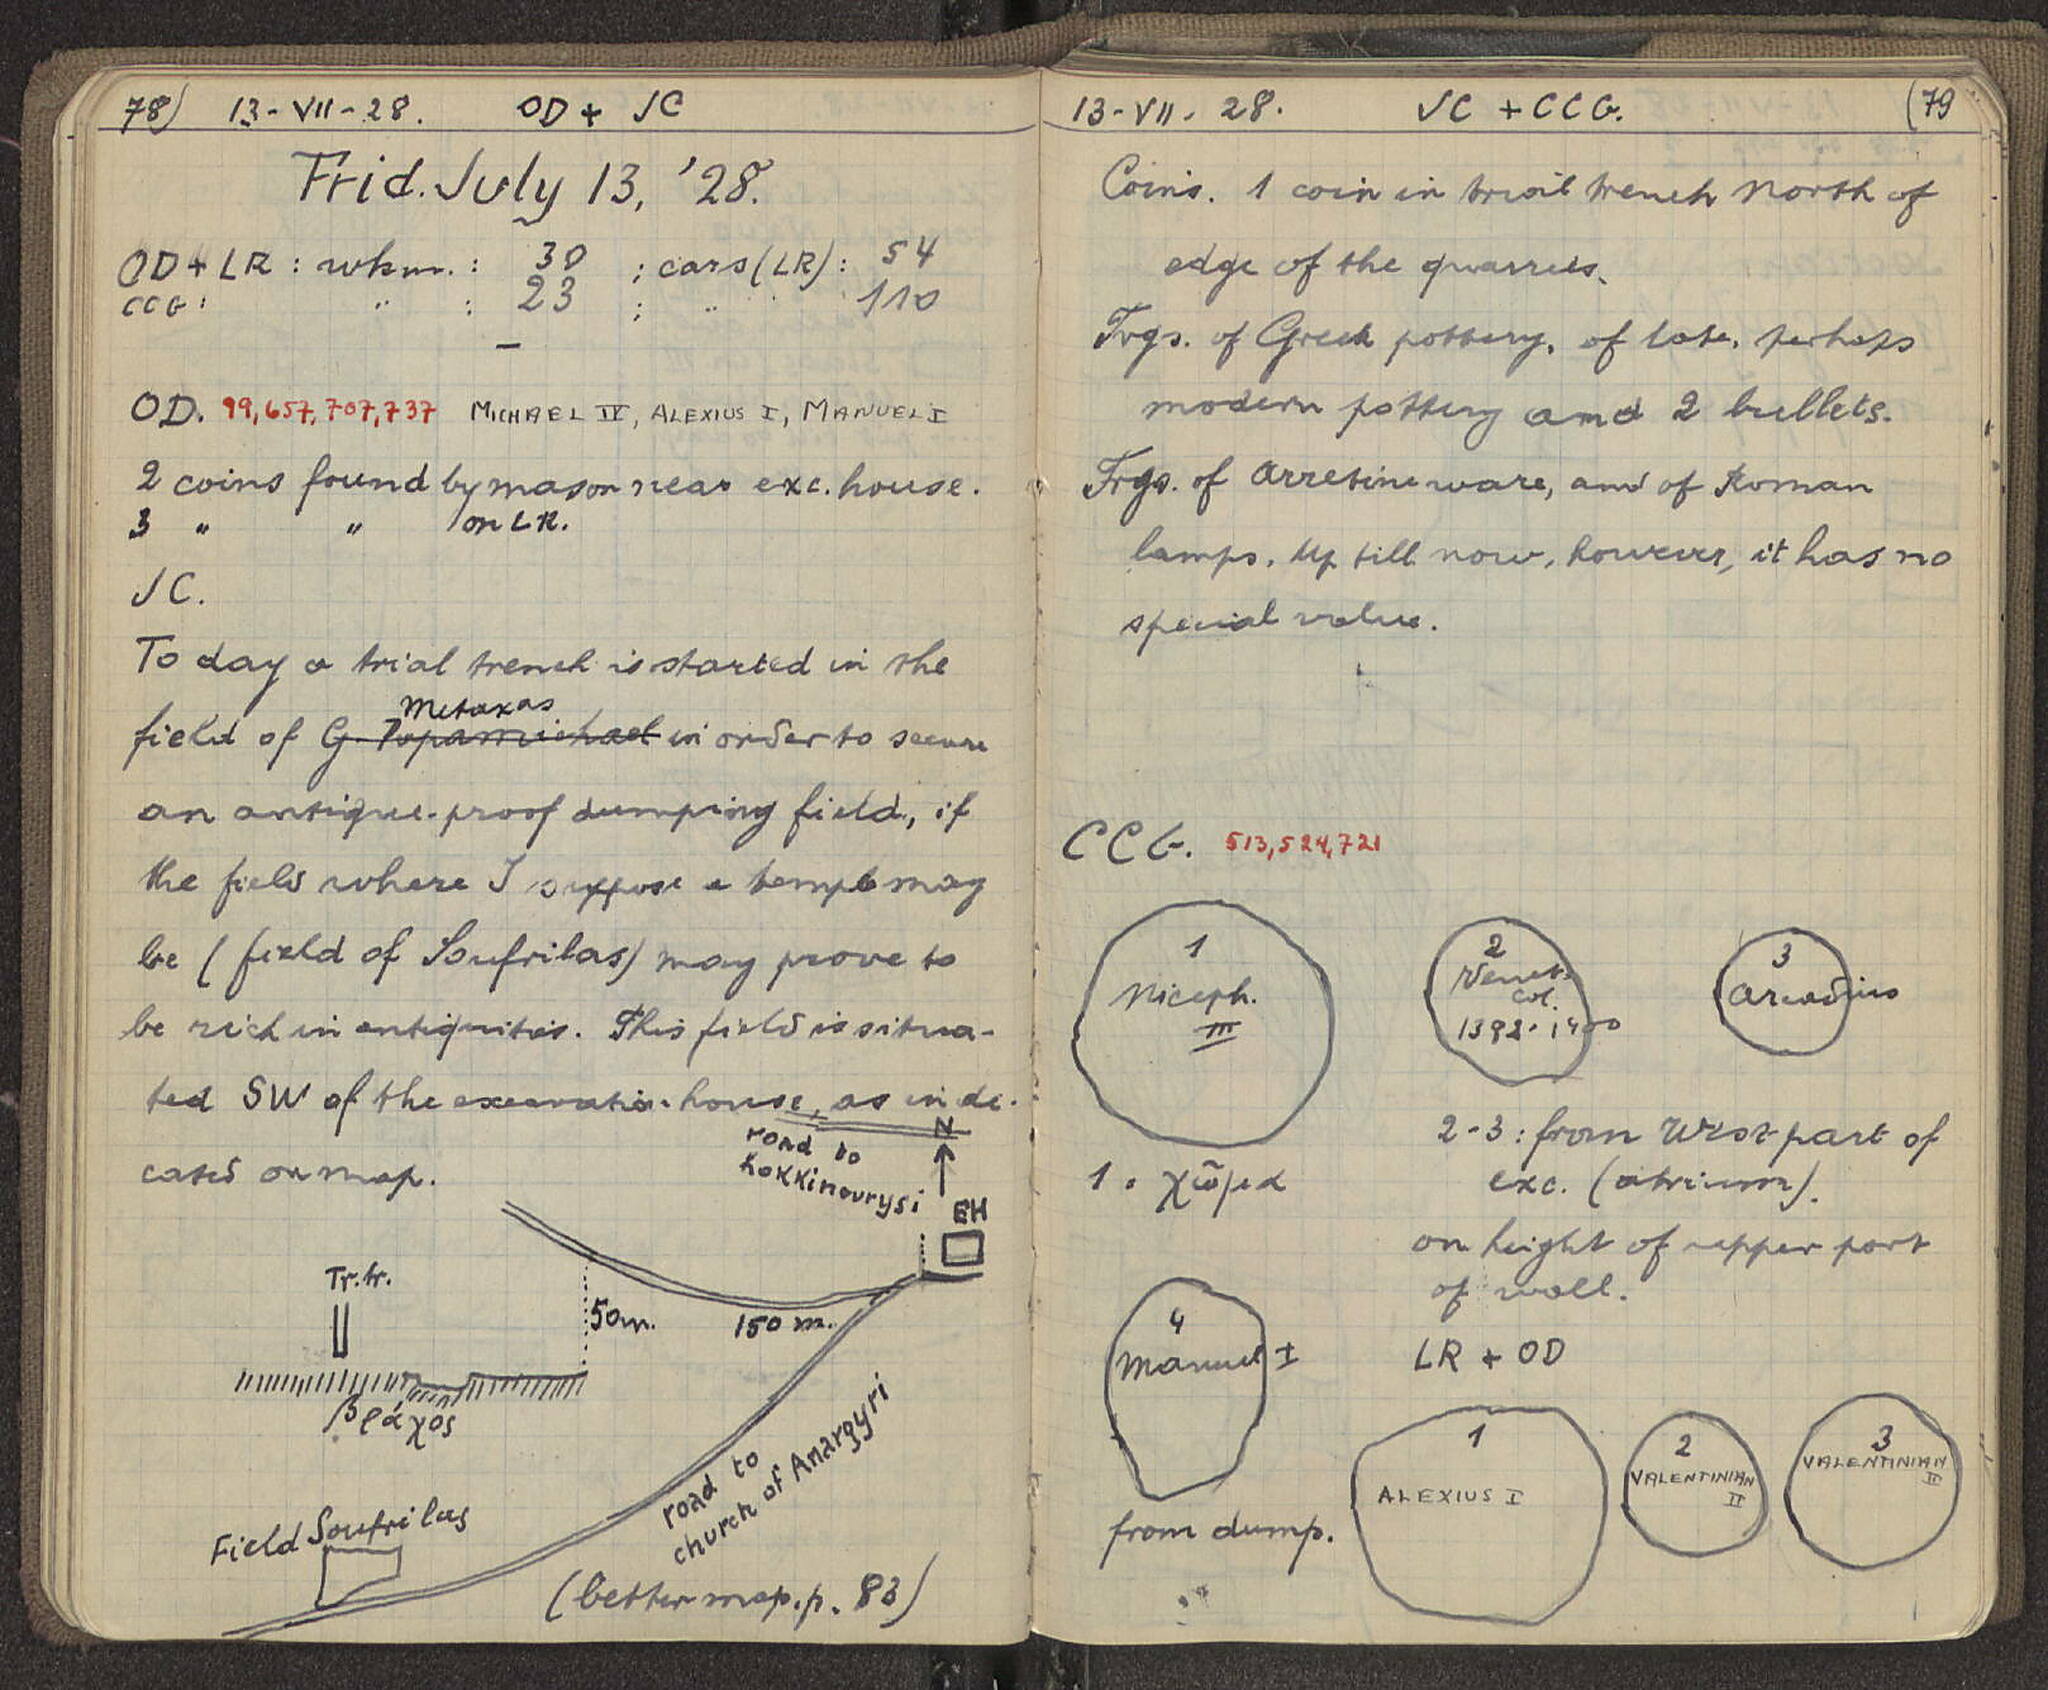 78) 13-VII-28. OD + JC
Frid. July 13, '28.
OD + LR : wkm. : 30 ; cars (LR) : 54
CCG : " : 23 ; " 110
OD. 99,657,707,737 MICHAEL IV, ALEXIUS I, MANUEL I
2 coins found by mason near exc. house.
3 " " on LR.
JC.
To day a trial trench is started in the
Metaxas
field of G. Papamichael in order to secure
an antique-proof dumping field, if
the field where I suppose a temple may
be (field of Soufrilas) may prove to
be rich in antiquities. This field is situa-
ted SW of the excavation-house, as indi-
cated on map.
N
road to
Kokkinovrysi
EH
Tr. tr.
50m.
150 m.
βράχος
road to
church of Anargyri
Field Soufrilas
(better map. p. 83)
13-VII-28. JC + CCG. (79
Coins. 1 coin in trial trench North of
edge of the quarries.
Frgs. of Greek pottery, of late, perhaps
modern pottery and 2 bullets.
Frgs. of Arretine ware, and of Roman
lamps. Up till now, however, it has no
special value.
CCG. 513,524,721
1
Niceph.
III
2
Venet.
Col.
1382-1400
3
Arcadius
1. χῶμα
2-3: from West part of
exc. (atrium).
on height of upper part
of wall.
4
Manuel I
from dump.
LR + OD
1
ALEXIUS I
2
VALENTINIAN
II
3
VALENTINIAN
II